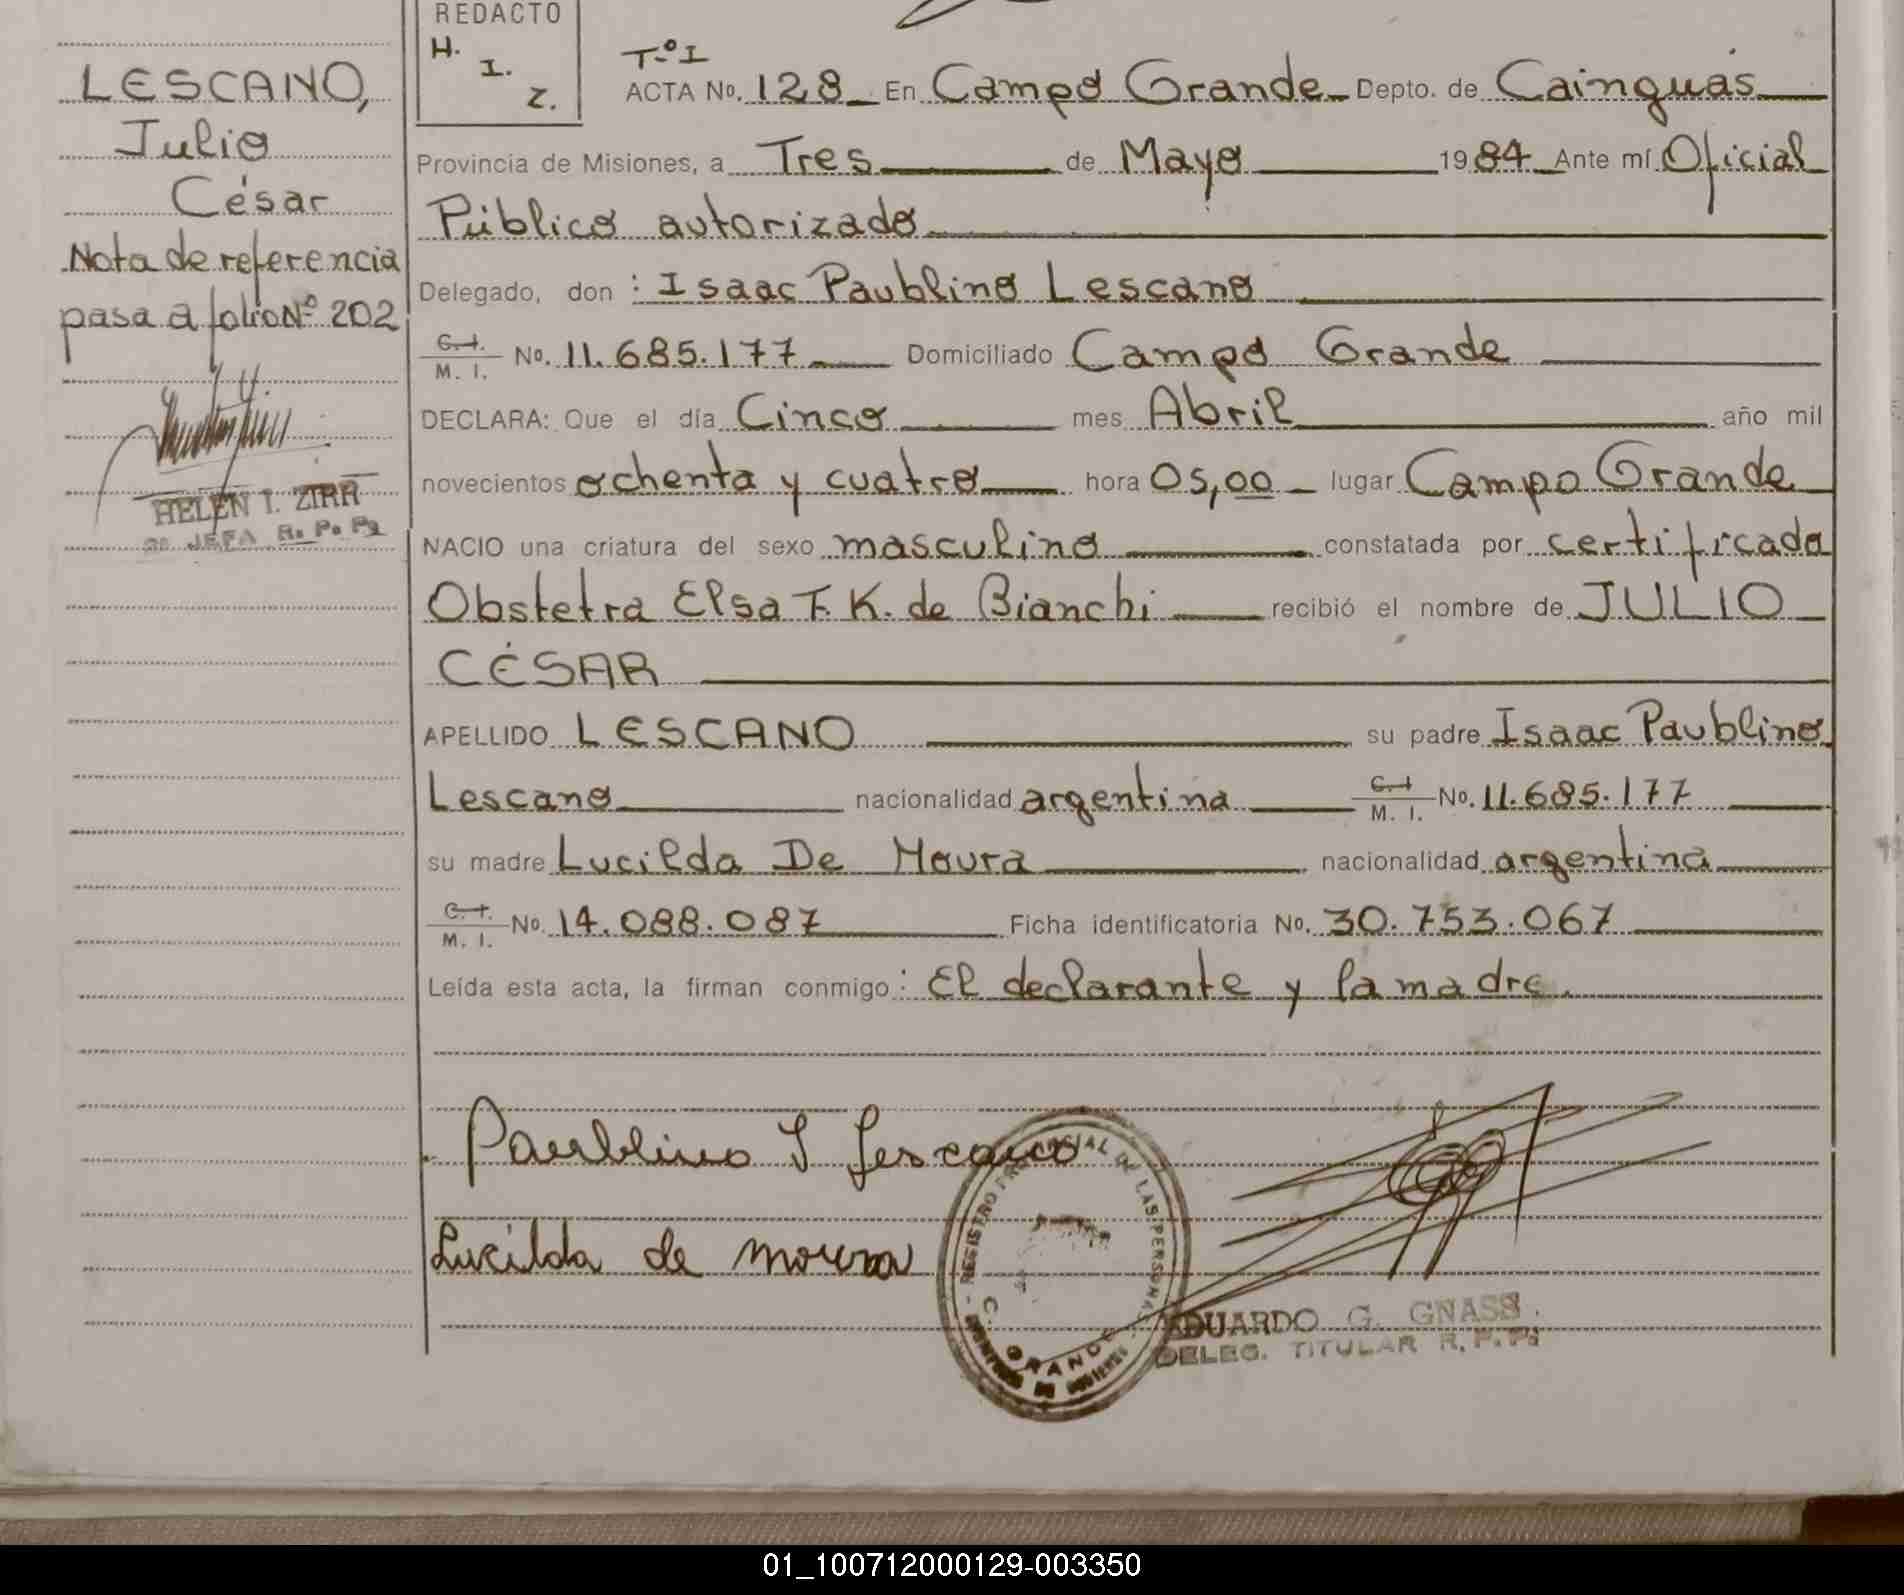 LESCANO,
Julio
César
Nota de referencia
pasa a folio Nº 202
HELEN I. ZIRR
JEFA R. P. P.
REDACTO
H.
I.
Z.
Tº I
ACTA No. 128 En Campo Grande Depto. de Cainguás
Provincia de Misiones, a Tres de Mayo 1984 Ante mí Oficial
Público autorizado
Delegado, don : Isaac Paublino Lescano
C. I. M. I. No. 11.685.177 Domiciliado Campo Grande
DECLARA: Que el día Cinco mes Abril año mil
novecientos ochenta y cuatro hora 05,00 lugar Campo Grande
NACIO una criatura del sexo masculino constatada por certificada
Obstetra Elsa T. K. de Bianchi recibió el nombre de JULIO
CÉSAR
APELLIDO LESCANO su padre Isaac Paublino
Lescano nacionalidad argentina C. I. M. I. No. 11.685.177
su madre Lucilda De Moura nacionalidad argentina
C. I. M. I. No. 14.088.087 Ficha identificatoria No. 30.753.067
Leída esta acta, la firman conmigo : El declarante y la madre.
Paublino I Lescano
Lucilda de moura
REGISTRO PROVINCIAL DE LAS PERSONAS
C. GRANDE
EDUARDO G. GNASS
DELEG. TITULAR R. P. P.
01_100712000129-003350